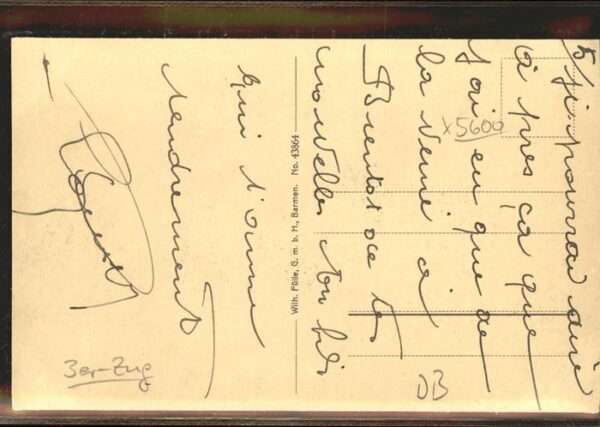 je pourrai dire
après ça que
j'ai eu que de
la veine à
Bientot de tes
nouvelles ton fils
qui t'aime
tendrement
Wilh. Fülle, G. m. b. H., Barmen. No. 43864
x5600
3er-Zug
DB